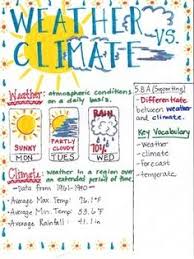 WEATHER
VS.
CLIMATE
Weather: atmospheric conditions
on a daily basis.
SUNNY
MON
PARTLY
CLOUDY
TUES
RAIN
70%
WED
Climate: weather in a region over
an extended period of time.
- Data from 1961-1990 -
- Average Max. Temp: 76.1°F
- Average Min. Temp: 53.6°F
- Average Rainfall: 41.1 in
S.B.A (Supporting)
- Differentiate
between weather
and climate.
Key Vocabulary
- weather
- climate
- forecast
- temperate